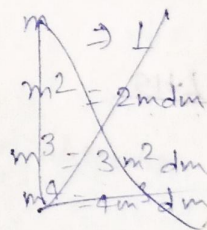 m ⇒ 1
m² = 2mdm
m³ = 3m²dm
m⁴ = 4m³dm